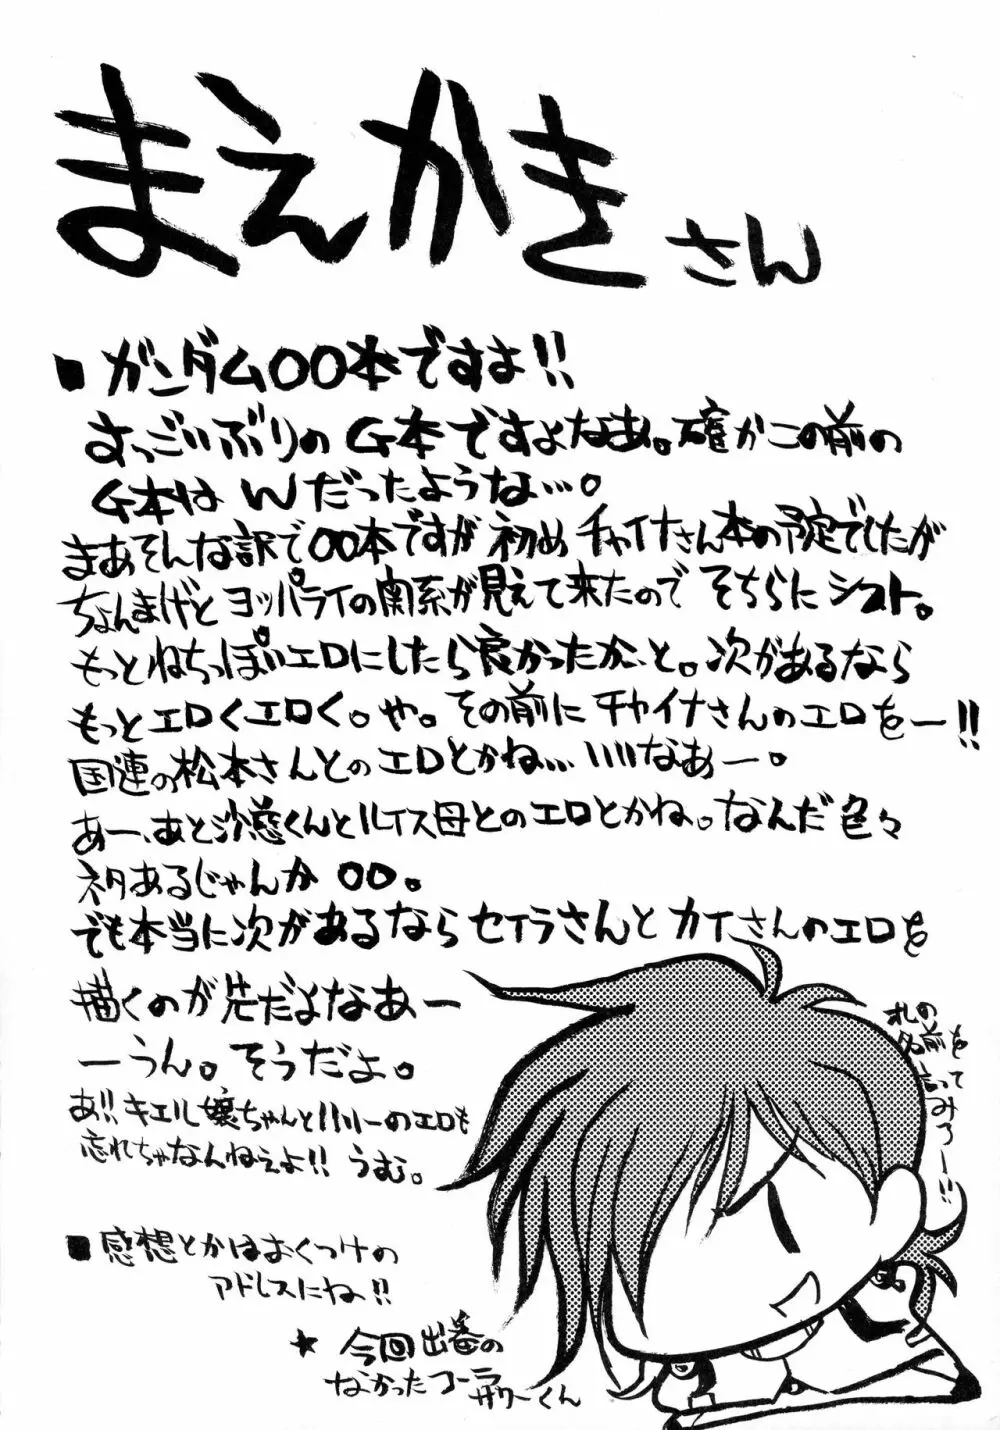 まえかきさん
■ガンダム〇〇本ですよ!!
すっごいぶりのG本ですよなあ。確かこの前の
G本はWだったような…。
まあそんな訳で〇〇本ですが初めチャイナさん本の予定でしたが
ちょんまげとヨッパライの関係が見えて来たのでそちらにシフト。
もっとねちっぽいエロにしたら良かったか、と。次があるなら
もっとエロくエロく。や。その前にチャイナさんのエロをー!!
国連の松本さんとのエロとかね…いいなあー。
あー、あと沙慈くんとルイス母とのエロとかね。なんだ色々
ネタあるじゃんか〇〇。
でも本当に次があるならセイラさんとカイさんのエロを
描くのが先だよなあー
ーうん。そうだよ。
あ!!キエル嬢ちゃんとハリーのエロも
忘れちゃなんねぇよ!!うむ。
■感想とかはおくつけの
アドレスにね!!
★今回出番の
なかったコーラ
サワーくん
オレの
名前を
言って
みろー!!